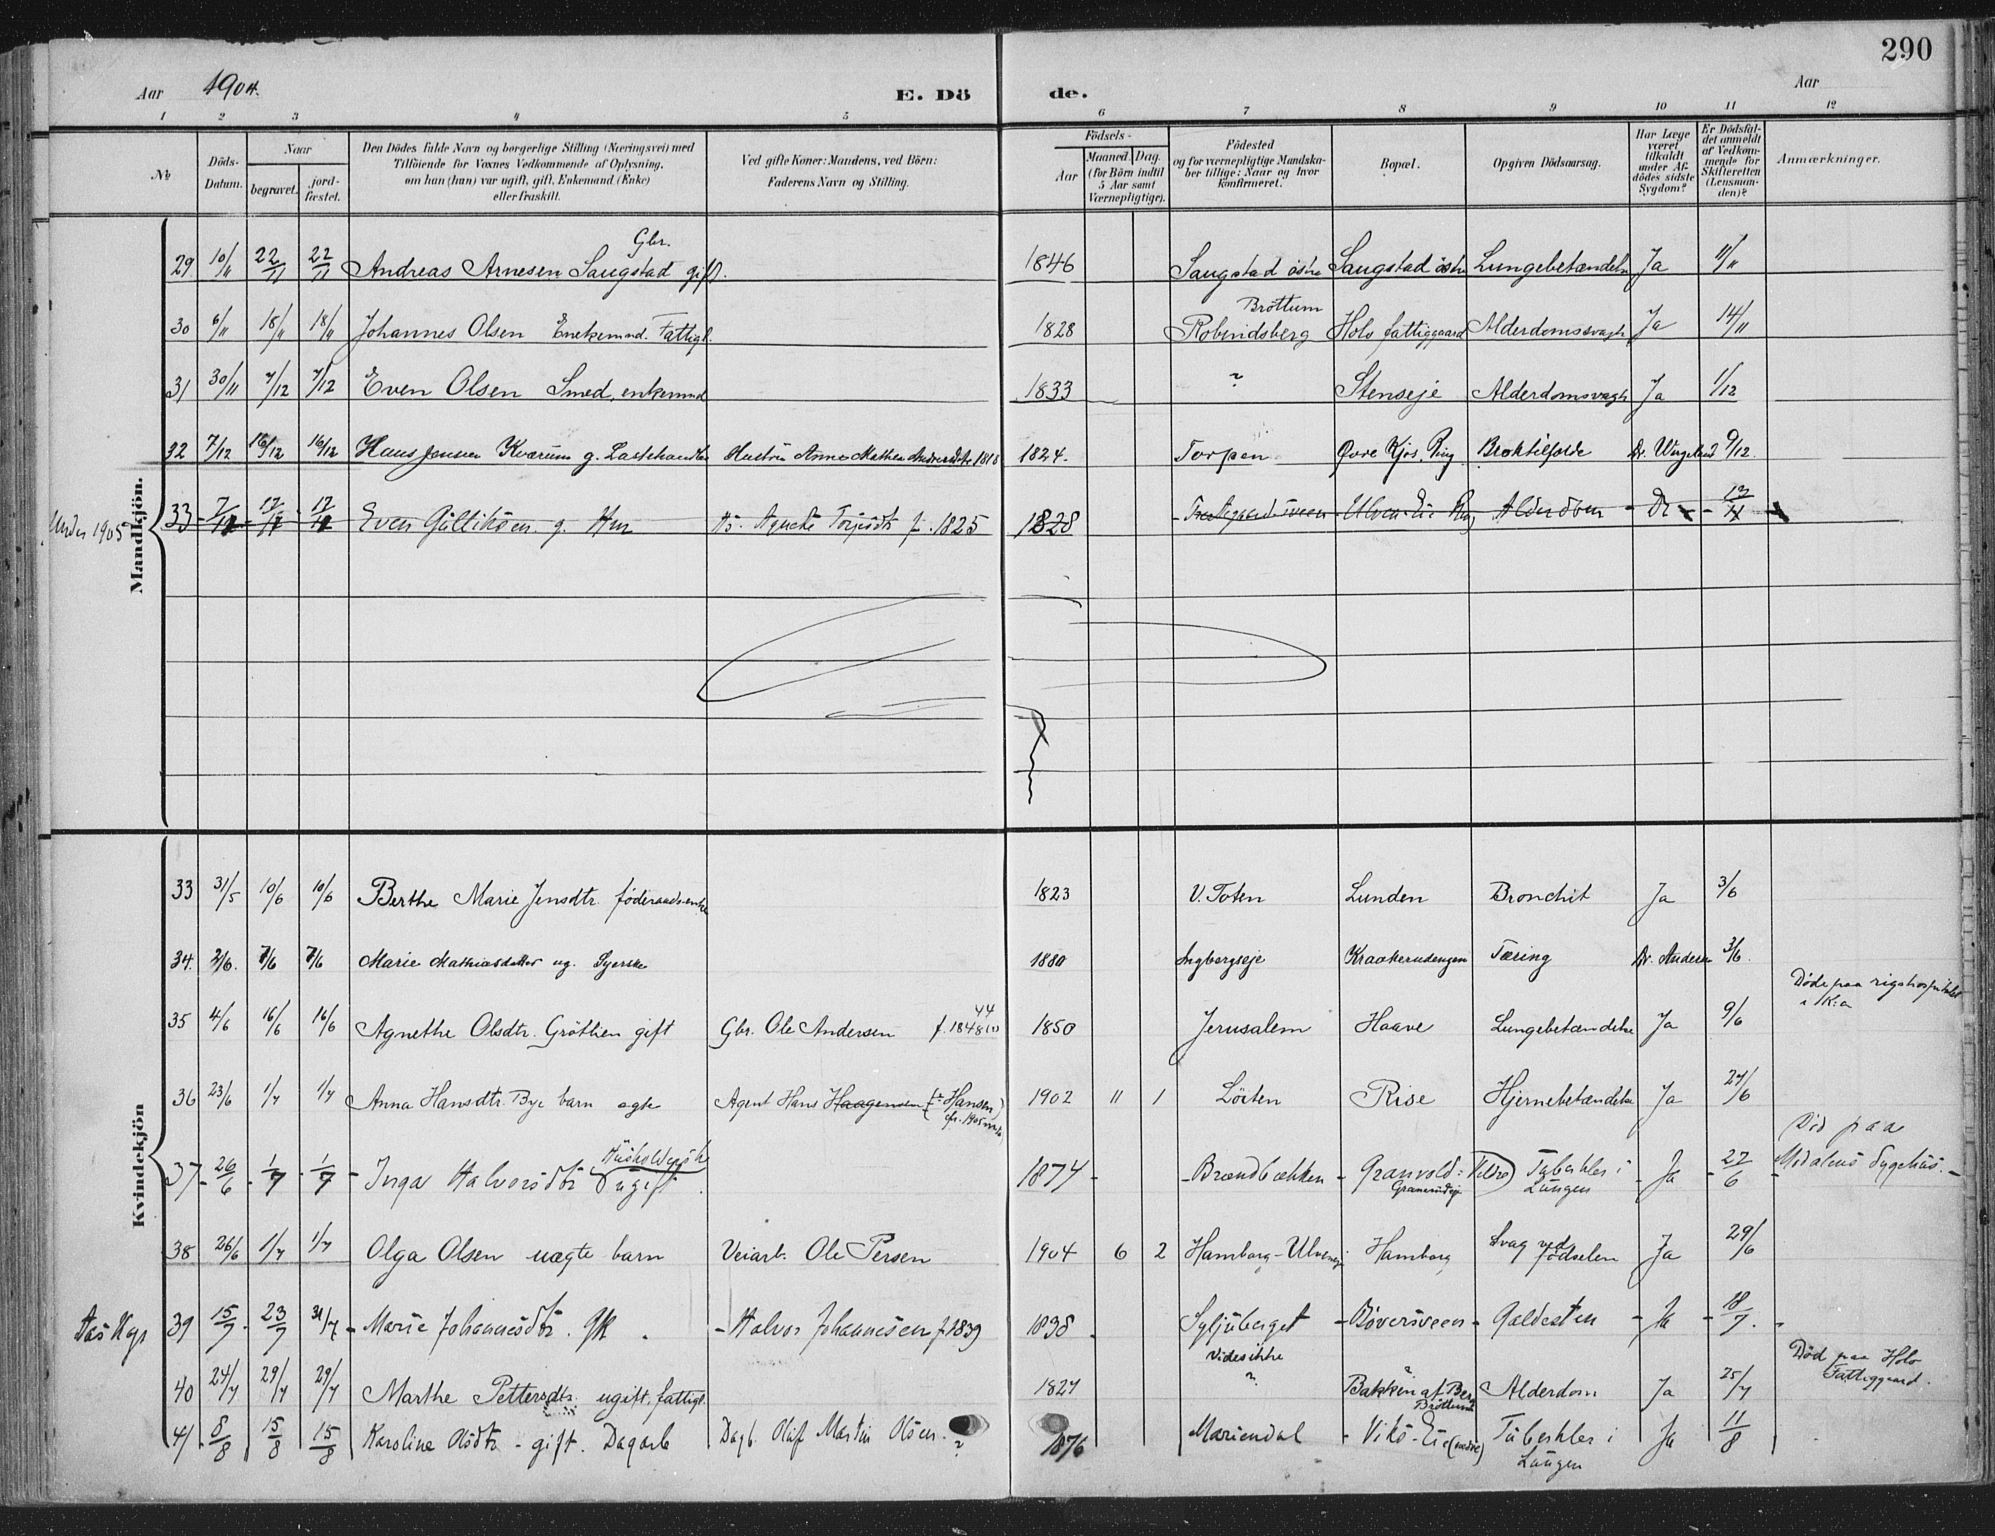 290
Aar 1904.
E. Dö
de.
Aar
1 2 3 4 5 6 7 8 9 10 11 12
№
Döds-Datum.
Naar
begravet.
jord-fæstet.
Den Dödes fulde Navn og borgerlige Stilling (Næringsvei) med
Tilföiende for Voxnes Vedkommende af Oplysning,
om han (hun) var ugift, gift, Enkemand (Enke)
eller fraskilt.
Ved gifte Koner: Mandens, ved Börn:
Faderens Navn og Stilling.
Födsels-
Aar
Maaned. Dag.
(for Börn indtil
5 Aar samt
Værnepligtige).
Födested
og for værnepligtige Mandska-
ber tillige: Naar og hvor
konfirmeret.
Bopæl.
Opgiven Dödsaarsag.
Har Læge
været
tilkaldt
under Af-
dödes sidste
Sygdom?
Er Dödsfal-
det anmeldt
af Vedkom-
mende for
Skifteretten
(Lensman-
den)?
Anmærkninger.
Mandkjön.
29 10/11 22/11 22/11 Andreas Arnesen Saugstad Gbr. gift. 1846 Saugstad östre Saugstad östre Lungebetændelse Ja 11/11
30 6/11 18/11 18/11 Johannes Olsen Enekemnd. Fattigl. 1828 Bröttum Robendsberg Holo fattiggaard Alderdomssvagh Ja 14/11
31 30/11 7/12 7/12 Even Olsen Smed, enkemnd 1833 ? Stenseje Alderdomsvagh Ja 1/12
32 7/12 16/12 16/12 Hans Jensen Kværum g. Hustru Anne Mathea 1818 1824. Torpen Øvre Kjos, Ring Broktilfælde Dr. 9/12.
Under 1905
33 12 Even g. Hm f. 1825 1828
Kvindekjön
33 31/5 10/6 10/6 Berthe Marie Jensdtr. föderaadsenke 1823 V. Toten Lunden Bronchit Ja 3/6
34. 2/6. 7/6 7/6 Marie Mathiasdatter ug. Syerske 1880 Ingbergseje Kraakerudengen Tæring Dr. Andersen 3/6.
35 4/6 16/6 16/6 Agnethe Olsdtr. Gröthien gift Gbr. Ole Andersen f. 1848 44 1850 Jerusalem Haave Lungebetændelse Ja 9/6 Döde paa rigshospitalet i K:a
36 23/6 1/7 1/7 Anna Hansdtr. Bye barn ægte Agent Hans Haagensen (: Hansen) 1902 11 1 Löiten Rise Hjernebetændelse Ja 27/6
37 26/6 1/7 1/7 Inga Halvorsdtr ugift 1874 Brændbækken Granvold: Tuberkler i Lungen Ja 27/6 Död paa Modalens Sygehus.
38 26/6 1/7 1/7 Olga Olsen uægte barn Veiarb. Ole Persen 1904 6 2 Hamborg-Ulven Hamborg Svag ved födselen Ja 29/6
39 15/7 23/7 31/7 Marie Johannesdtr. Gk. Halvor Johannesen f. 1839 1838 Syljuberget Böversveen Galdesten Ja 18/7.
40 24/7 29/7 29/7 Marthe Pettersdtr. ugift, fattigl. 1827 Vides ikke ? Bakken af Berg Bröttum Alderdom Ja 25/7 Död paa Holo Fattiggaard.
41 8/8 15/8 15/8 Karoline Olsdtr - gift. Dagarb Dagb. Olaf Martin Olsen. ? 1876 Mariendal Vikö-Eie (nedre) Tuberkler i Lungen Ja 11/8